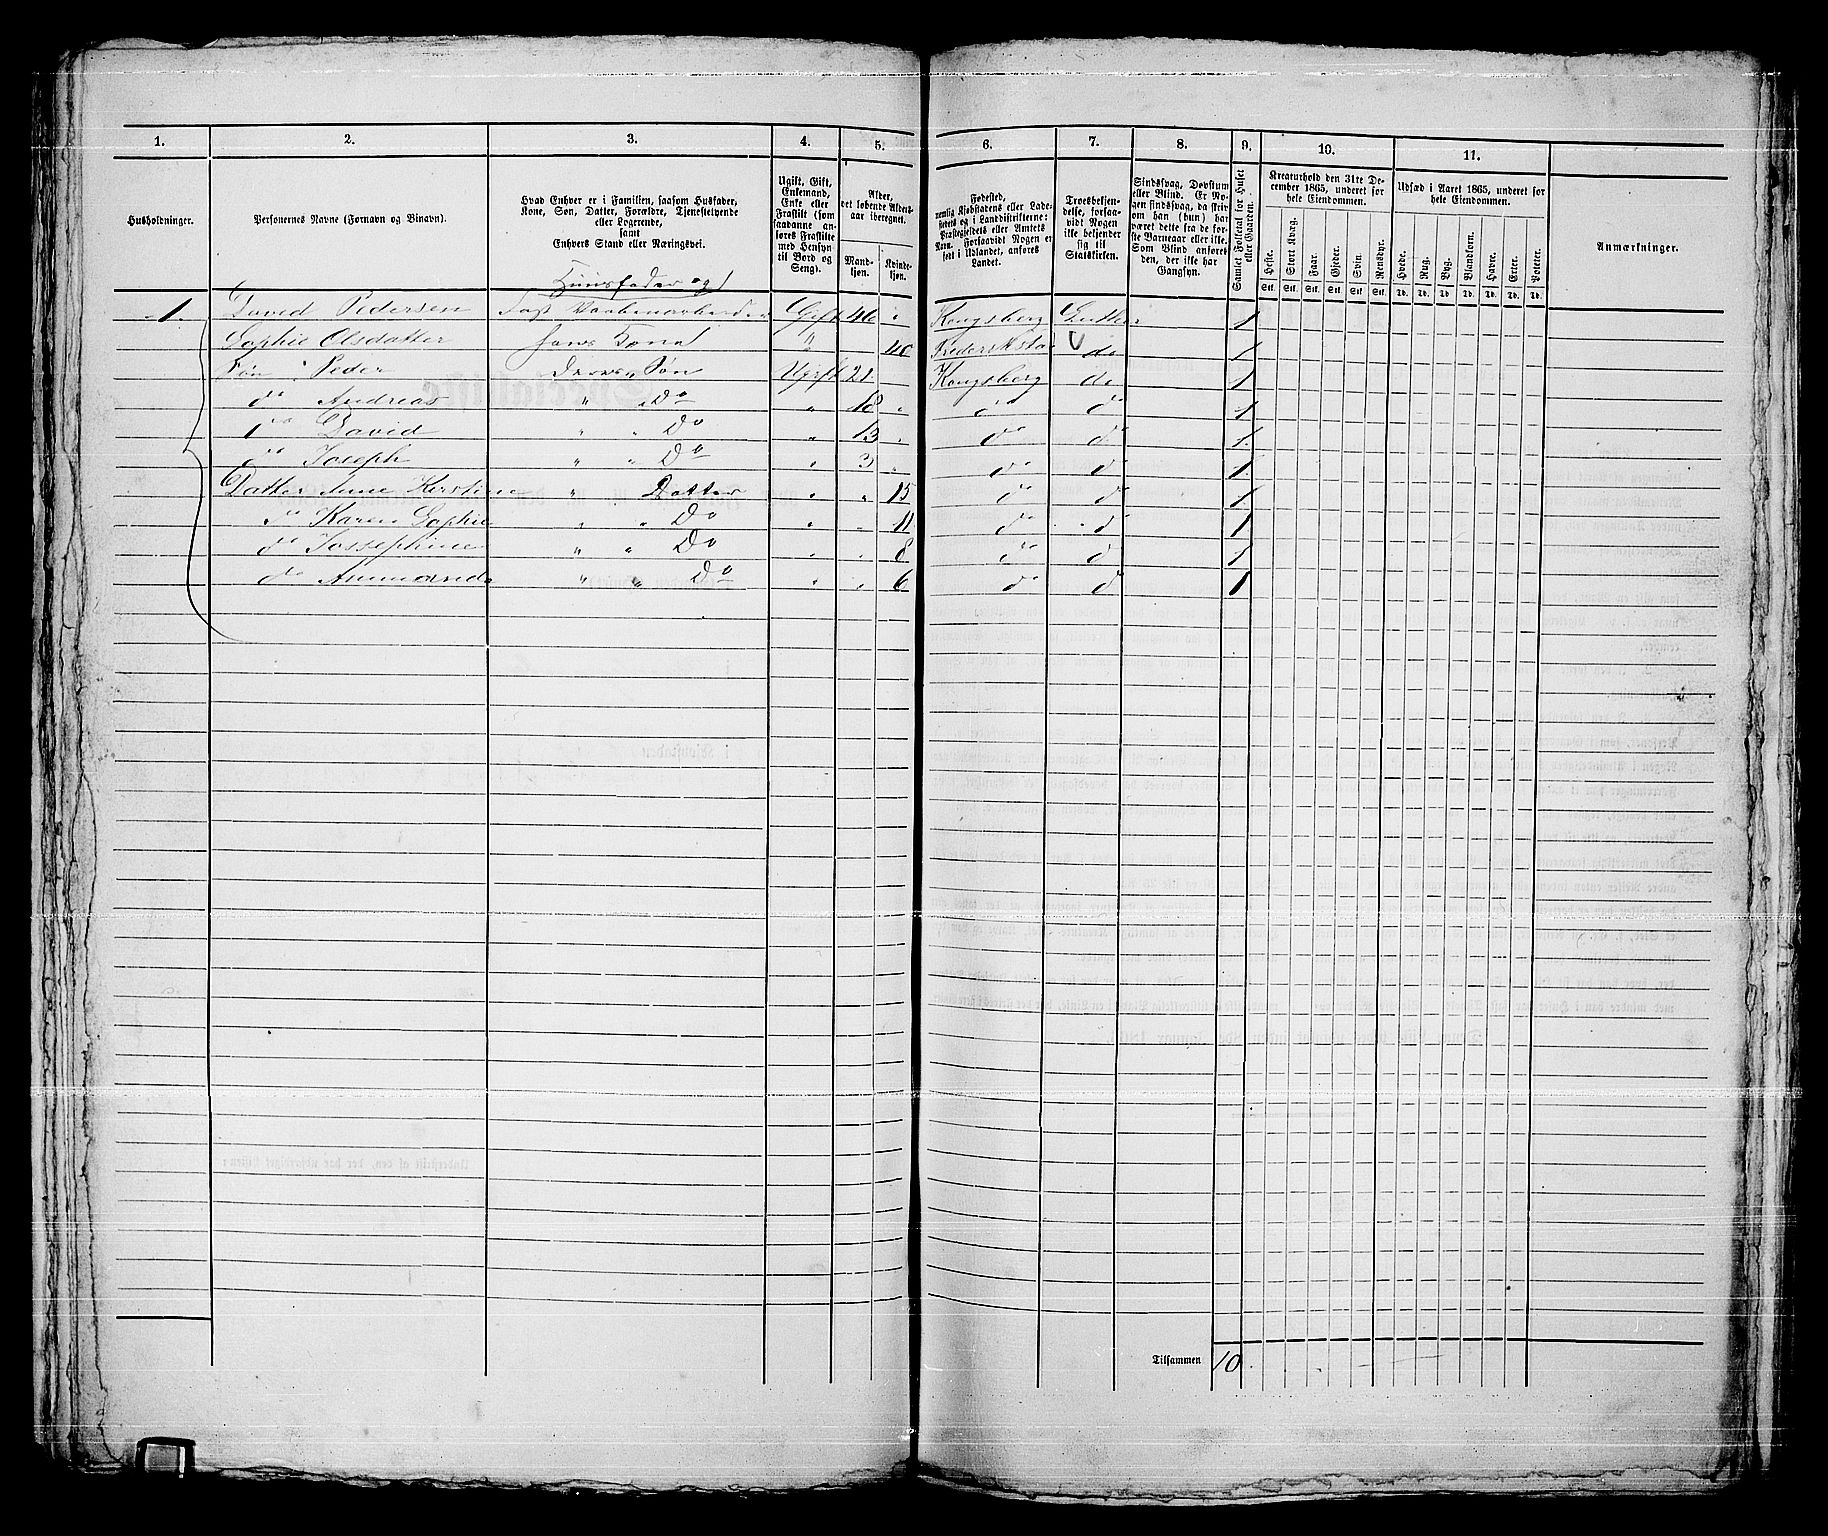 1. 2. 3. 4. 5. 6. 7. 8. 9. 10. 11.
Husholdninger.
Personernes Navne (Fornavn og Binavn).
Hvad Enhver er i Familien, saasom Husfader,
Kone, Søn, Datter, Forældre, Tjenestetyende
eller Logerende,
samt
Enhvers Stand eller Næringsvei.
Ugift, Gift,
Enkemand,
Enke eller
Fraskilt (som
saadanne an-
føres Fraskilte
med Hensyn
til Bord og
Seng).
Alder,
det løbende Alders-
aar iberegnet.
Mand-
kjøn.
Kvinde-
kjøn.
Fødested,
nemlig Kjøbstadens eller Lade-
stedets og i Landdistrikterne:
Præstegjeldets eller Amtets
Navn. Forsaavidt Nogen er
født i Udlandet, anføres
Landet.
Troesbekjen-
delse, forsaa-
vidt Nogen
ikke bekjender
sig til
Statskirken.
Sindssvag, Døvstum
eller Blind. Er No-
gen sindssvag, da skriv
om han (hun) har
været dette fra de før-
ste Barneaar eller ikke.
Som Blind anføres
den, der ikke har
Gangsyn.
Samlet Folketal for Huset
eller Gaarden.
Kreaturhold den 31te De-
cember 1865, underet for
hele Eiendommen.
Heste. Stort Kvæg. Faar. Gjeder. Svin. Rensdyr.
Stk. Stk. Stk. Stk. Stk. Stk.
Udsæd i Aaret 1865, underet for
hele Eiendommen.
Hvede. Rug. Byg. Blandkorn. Havre. Erter. Poteter.
Td. Td. Td. Td. Td. Td. Td.
Anmærkninger.
Huusfader og
1. David Pedersen Fast Vaabenarbeider Gift 46 " Kongsberg 1
Sophie Olsdatter hans Kone " 40 Frederikstad do 1
Søn " Peder Deres " Søn Ugift 21 Kongsberg do 1
do Andreas " " Do " 18 " do do 1
do David " " Do " 13 " do do 1
do Joseph " " Do " 3 " do do 1
Datter Anne Kirstine " Datter " " 15 do do 1
do Karen Sophie " " Do " " 11 do do 1
do Jossephine " " Do " " 8 do do 1
do " " Do " " 6 do do 1
Tilsammen 10